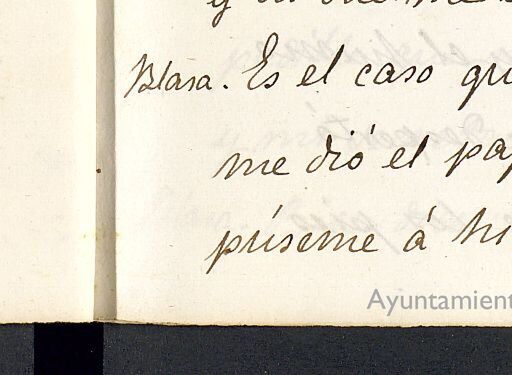 Blasa. Es el caso qu
me dió el pap
púseme á hi
Ayuntamient